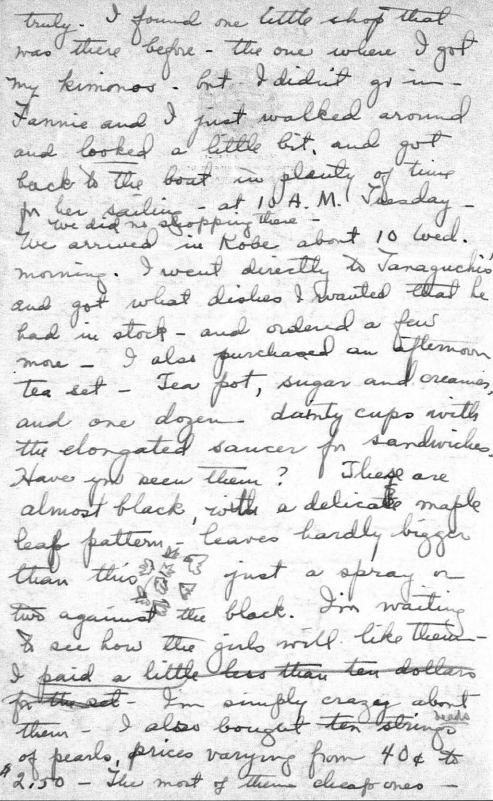 truly. I found one little shop that
was there before - the one where I got
my kimonos - but I didn't go in -
Fannie and I just walked around
and looked a little bit, and got
back to the boat in plenty of time
for her sailing - at 10 A.M. Tuesday -
We did no shopping there -
We arrived in Kobe about 10 Wed.
morning. I went directly to Tanaguchi's
and got what dishes I wanted that he
had in stock - and ordered a few
more - I also purchased an afternoon
tea set - Tea pot, sugar and creamer,
and one dozen dainty cups with
the elongated saucer for sandwiches.
Have you seen them? These are
almost black, with a delicate maple
leaf pattern, - leaves hardly bigger
than this just a spray or
two against the black. I'm waiting
to see how the girls will like them -
I paid a little less than ten dollars
for the set - I'm simply crazy about
them - I also bought ten strings
beads
of pearls, prices varying from 40¢ to
$2.50 - The most of them cheap ones -